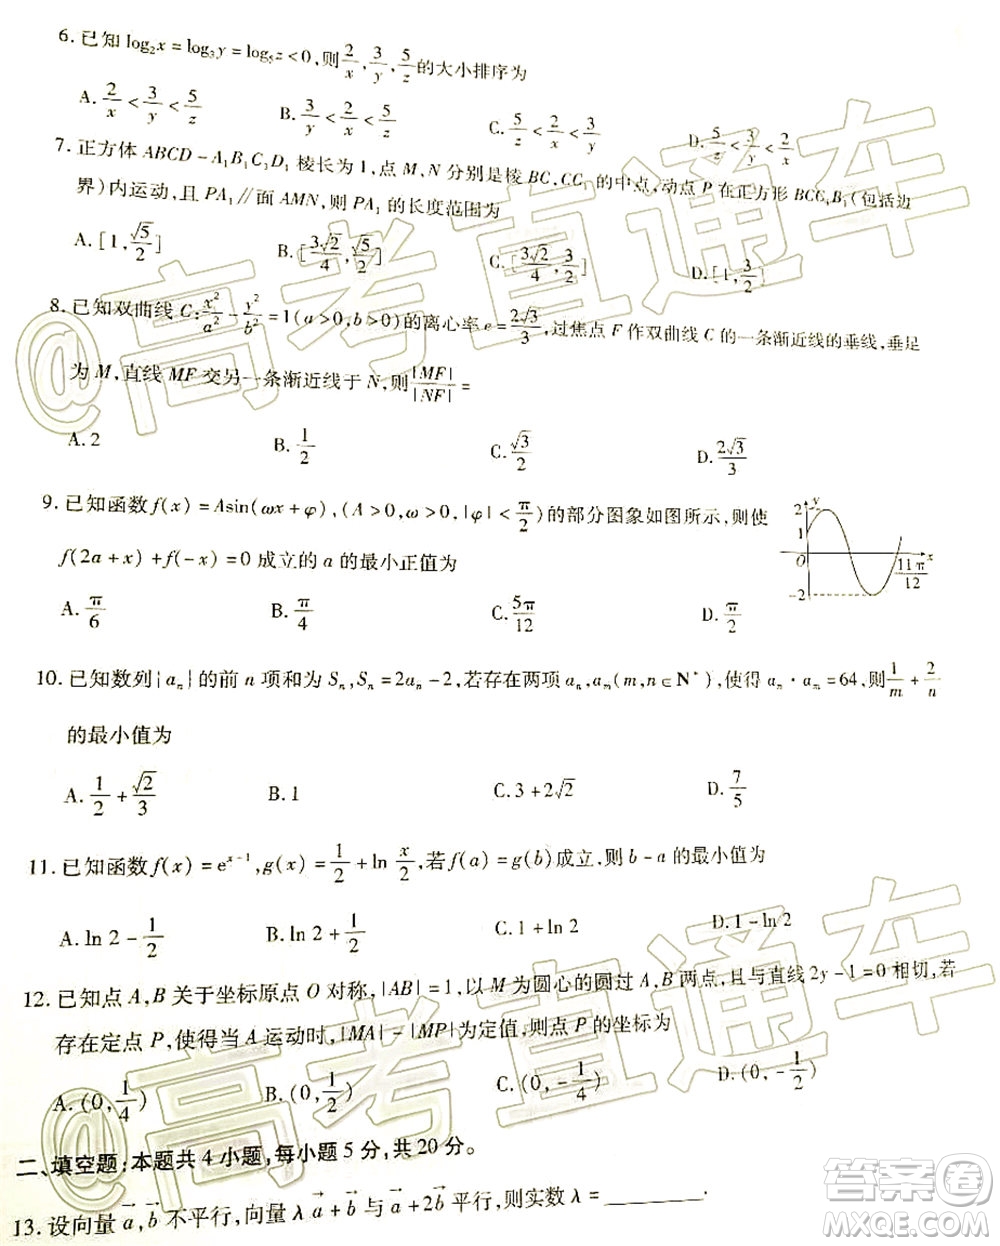 6.已知 log₂x = log₃y = log₅z < 0,则 2/x, 3/y, 5/z 的大小排序为
A. 2/x < 3/y < 5/z B. 3/y < 2/x < 5/z C. 5/z < 2/x < 3/y D. 5/z < 3/y < 2/x
7.正方体 ABCD - A₁B₁C₁D₁ 棱长为 1,点 M,N 分别是棱 BC,CC₁ 的中点,动点 P 在正方形 BCC₁B₁(包括边
界)内运动,且 PA₁ // 面 AMN,则 PA₁ 的长度范围为
A. [1, √5/2] B. [3√2/4, √5/2] C. [3√2/4, 3/2] D. [1, 3/2]
8.已知双曲线 C: x²/a² - y²/b² = 1(a>0,b>0)的离心率 e = 2√3/3,过焦点 F 作双曲线 C 的一条渐近线的垂线,垂足
为 M,直线 MF 交另一条渐近线于 N,则 |MF|/|NF| =
A. 2 B. 1/2 C. √3/2 D. 2√3/3
9.已知函数 f(x) = Asin(ωx + φ),(A > 0,ω > 0,|φ| < π/2)的部分图象如图所示,则使
f(2a + x) + f(-x) = 0 成立的 a 的最小正值为
A. π/6 B. π/4 C. 5π/12 D. π/2
y 2 1 O -2 11π/12 x
10.已知数列{aₙ}的前 n 项和为 Sₙ,Sₙ = 2aₙ - 2,若存在两项 aₙ,aₘ(m,n∈N*),使得 aₙ·aₘ = 64,则 1/m + 2/n
的最小值为
A. 1/2 + √2/3 B. 1 C. 3 + 2√2 D. 7/5
11.已知函数 f(x) = eˣ⁻¹,g(x) = 1/2 + ln x/2,若 f(a) = g(b)成立,则 b - a 的最小值为
A. ln 2 - 1/2 B. ln 2 + 1/2 C. 1 + ln 2 D. 1 - ln 2
12.已知点 A,B 关于坐标原点 O 对称,|AB| = 1,以 M 为圆心的圆过 A,B 两点,且与直线 2y - 1 = 0 相切,若
存在定点 P,使得当 A 运动时,|MA| - |MP|为定值,则点 P 的坐标为
A. (0, 1/4) B. (0, 1/2) C. (0, -1/4) D. (0, -1/2)
二、填空题:本题共 4 小题,每小题 5 分,共 20 分。
13.设向量 a⃗,b⃗ 不平行,向量 λa⃗ + b⃗ 与 a⃗ + 2b⃗ 平行,则实数 λ = ________.
@高考直通车
@高考直通车
答案圈
MXQE.COM